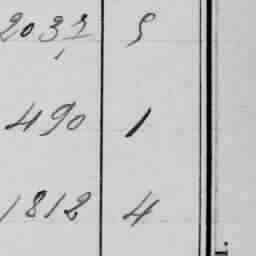 2037 5
490 1
1812 4